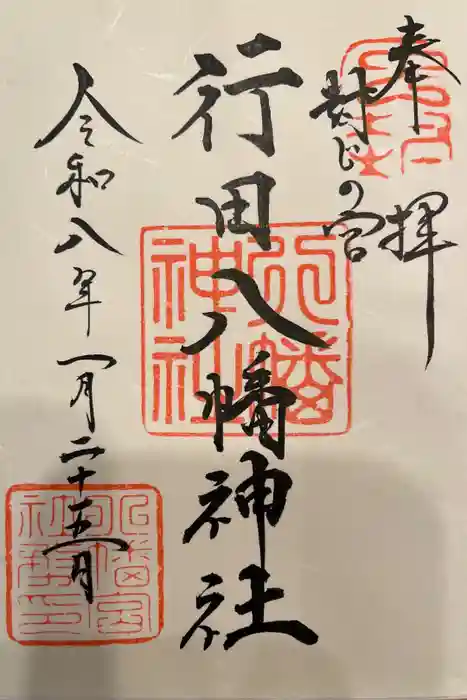 奉拝
封じの宮
行田八幡神社
令和八年一月二十五日